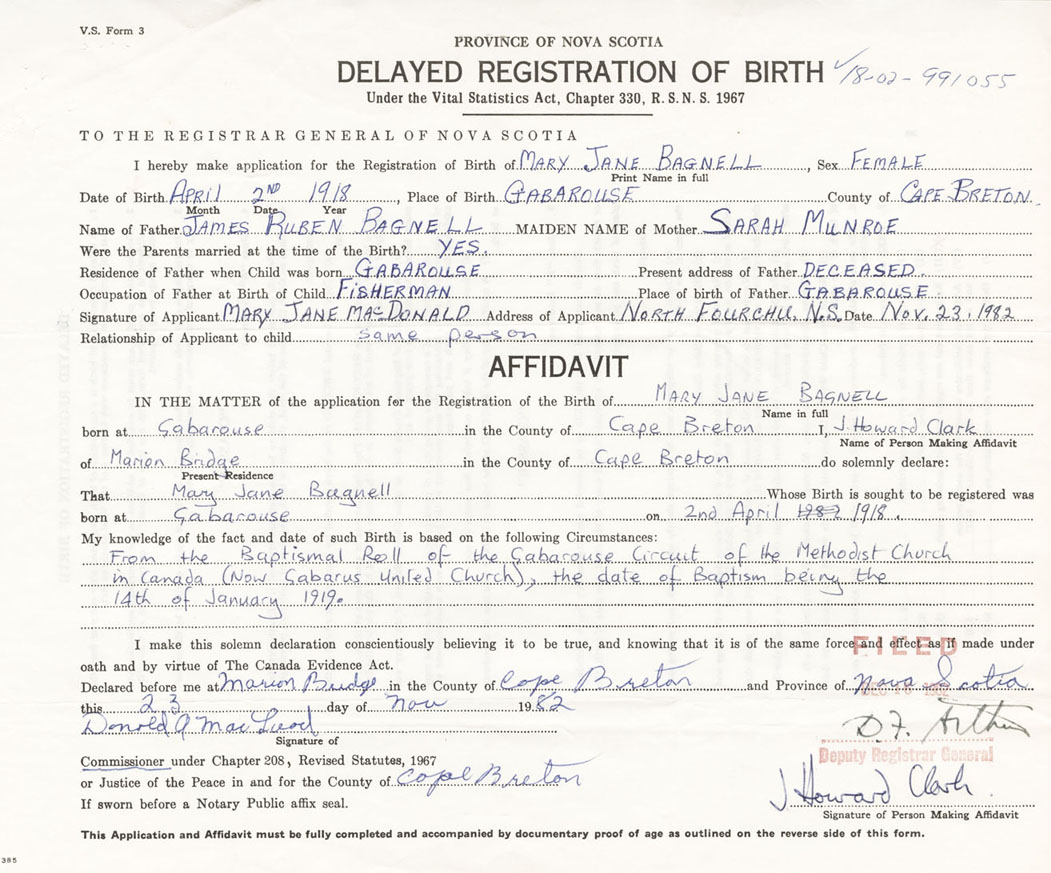 V.S. Form 3
PROVINCE OF NOVA SCOTIA
DELAYED REGISTRATION OF BIRTH 18-02-991055
Under the Vital Statistics Act, Chapter 330, R.S.N.S. 1967
TO THE REGISTRAR GENERAL OF NOVA SCOTIA
I hereby make application for the Registration of Birth of MARY JANE BAGNELL, Sex FEMALE
Print Name in full
Date of Birth APRIL 2ND 1918, Place of Birth GABAROUSE County of CAPE BRETON.
Month Date Year
Name of Father JAMES RUBEN BAGNELL MAIDEN NAME of Mother SARAH MUNROE
Were the Parents married at the time of the Birth? YES.
Residence of Father when Child was born GABAROUSE Present address of Father DECEASED.
Occupation of Father at Birth of Child FISHERMAN Place of birth of Father GABAROUSE
Signature of Applicant MARY JANE MACDONALD Address of Applicant NORTH FOURCHU, N.S. Date NOV. 23, 1982
Relationship of Applicant to child same person
AFFIDAVIT
IN THE MATTER of the application for the Registration of the Birth of MARY JANE BAGNELL
Name in full
born at Gabarouse in the County of Cape Breton I, J. Howard Clark
Name of Person Making Affidavit
of Marion Bridge in the County of Cape Breton do solemnly declare:
Present Residence
That Mary Jane Bagnell Whose Birth is sought to be registered was
born at Gabarouse on 2nd April 1982 1918.
My knowledge of the fact and date of such Birth is based on the following Circumstances:
From the Baptismal Roll of the Gabarouse Circuit of the Methodist Church
in Canada (Now Gabarus United Church), the date of Baptism being the
14th of January 1919.
I make this solemn declaration conscientiously believing it to be true, and knowing that it is of the same force and effect as if made under
FILED
oath and by virtue of The Canada Evidence Act.
Declared before me at Marion Bridge in the County of Cape Breton and Province of Nova Scotia
this 23 day of Nov 1982
Donald A MacLeod D.F. Arthur
Signature of
Deputy Registrar General
Commissioner under Chapter 208, Revised Statutes, 1967
or Justice of the Peace in and for the County of Cape Breton
J Howard Clark
If sworn before a Notary Public affix seal.
Signature of Person Making Affidavit
This Application and Affidavit must be fully completed and accompanied by documentary proof of age as outlined on the reverse side of this form.
385